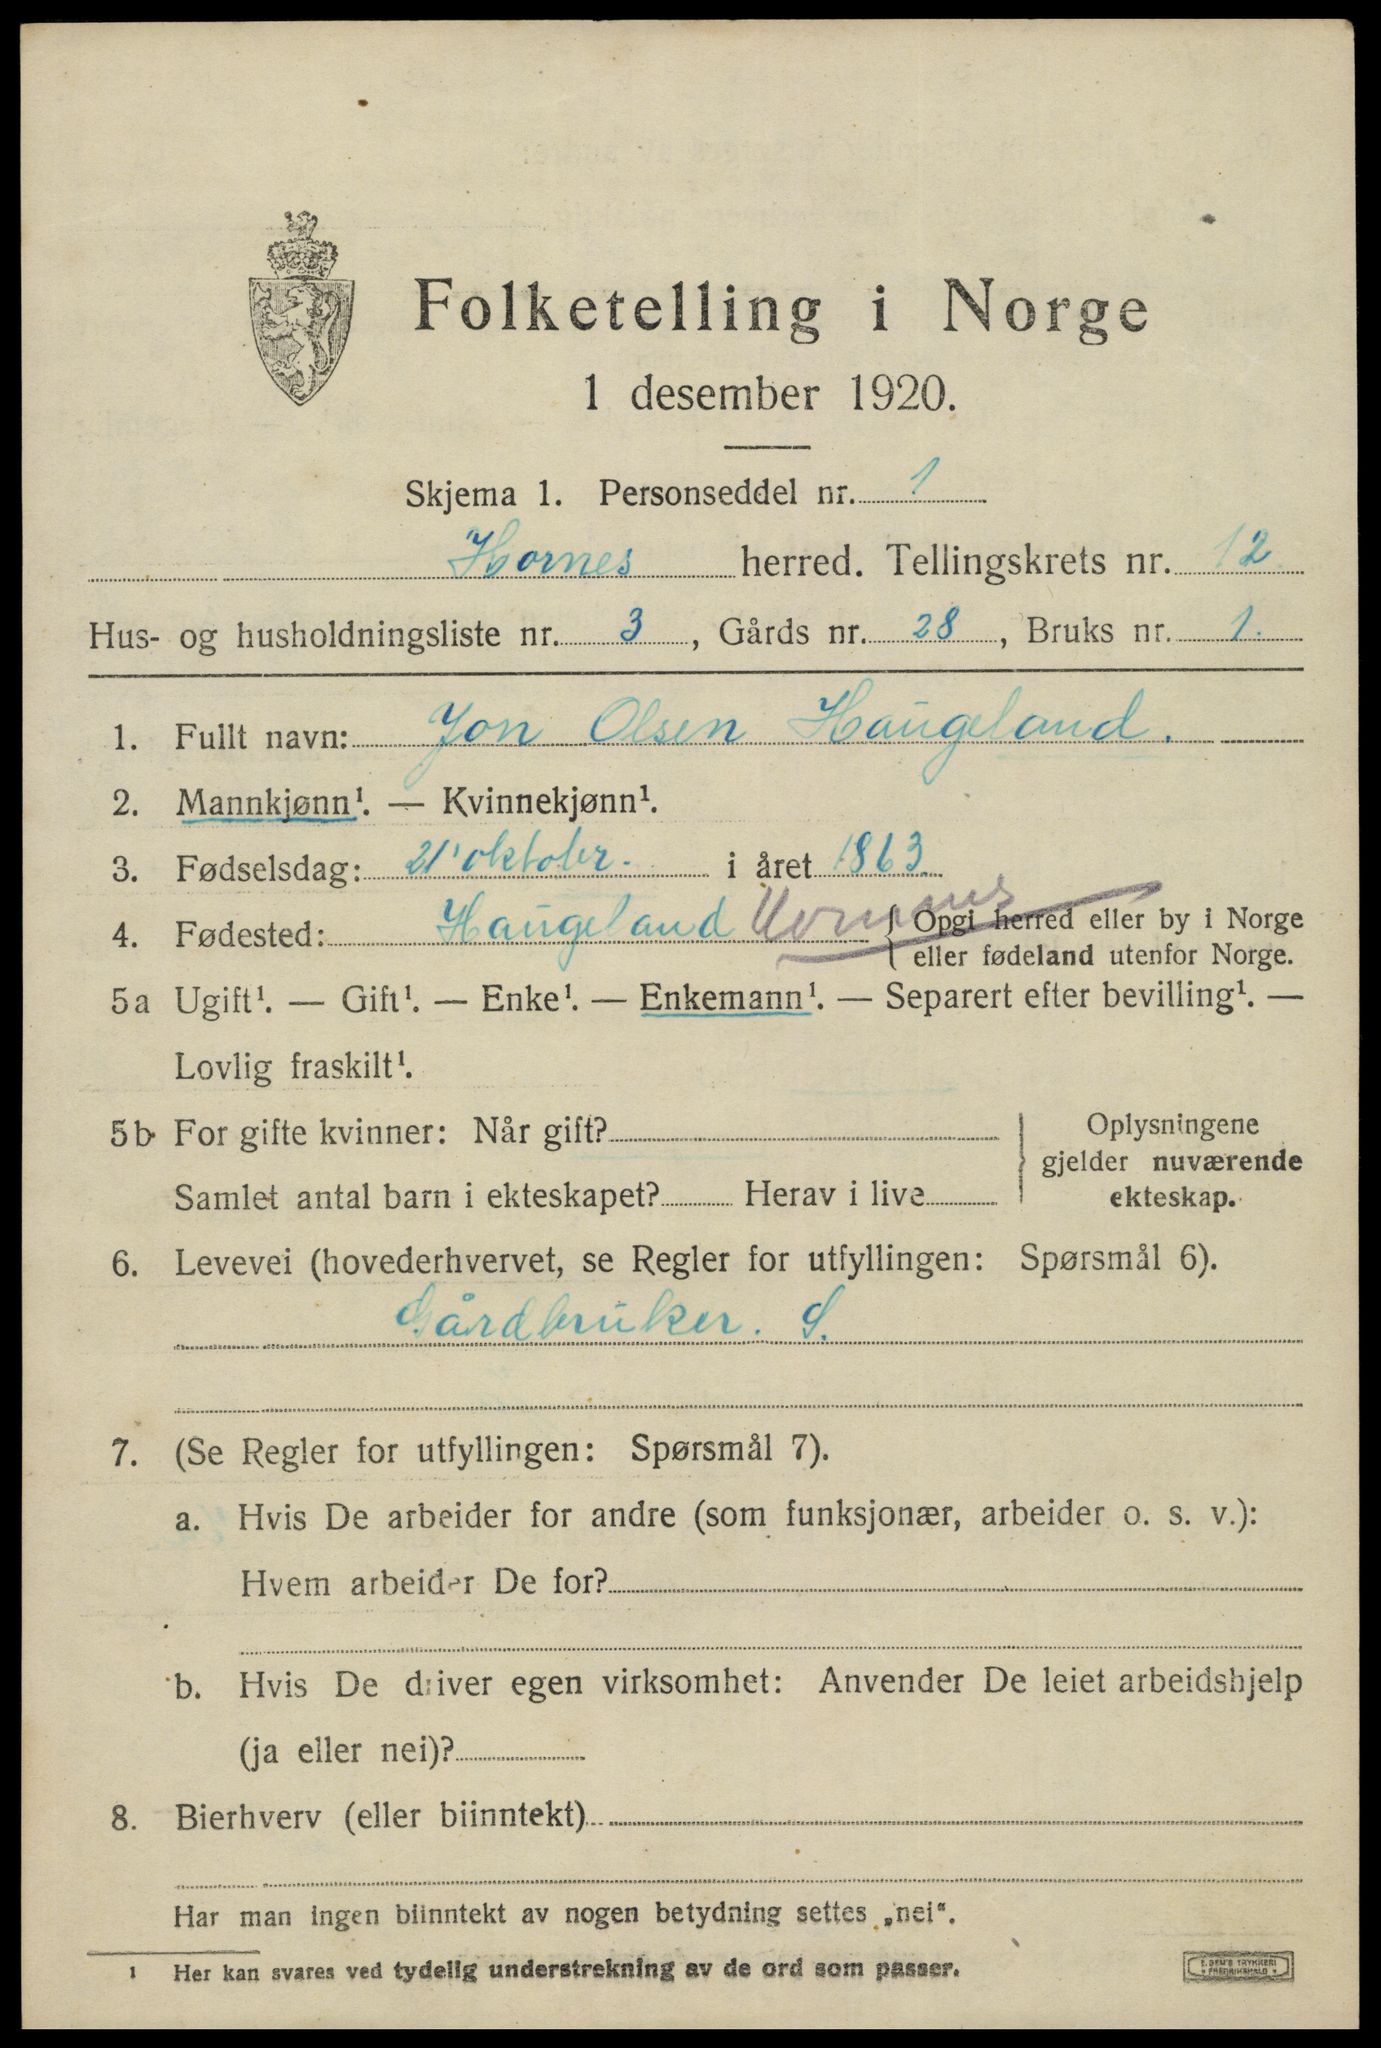 Folketelling i Norge
1 desember 1920.
Skjema 1. Personseddel nr. 1
Hornes herred. Tellingskrets nr. 12
Hus- og husholdningsliste nr. 3, Gårds nr. 28, Bruks nr. 1.
1. Fullt navn: Jon Olsen Haugeland.
2. Mannkjønn¹. — Kvinnekjønn¹.
3. Fødselsdag: 21' oktober. i året 1863
4. Fødested: Haugeland { Opgi herred eller by i Norge
eller fødeland utenfor Norge.
5a Ugift¹. — Gift¹. — Enke¹. — Enkemann¹. — Separert efter bevilling¹. —
Lovlig fraskilt¹.
5b For gifte kvinner: Når gift?
Samlet antal barn i ekteskapet? Herav i live
Oplysningene
gjelder nuværende
ekteskap.
6. Levevei (hovederhvervet, se Regler for utfyllingen: Spørsmål 6).
Gårdbruker. S.
7. (Se Regler for utfyllingen: Spørsmål 7).
a. Hvis De arbeider for andre (som funksjonær, arbeider o. s. v.):
Hvem arbeider De for?
b. Hvis De driver egen virksomhet: Anvender De leiet arbeidshjelp
(ja eller nei)?
8. Bierhverv (eller biinntekt)
Har man ingen biinntekt av nogen betydning settes „nei“.
¹ Her kan svares ved tydelig understrekning av de ord som passer.
E. SEM'S TRYKKERI
FREDRIKSHALD